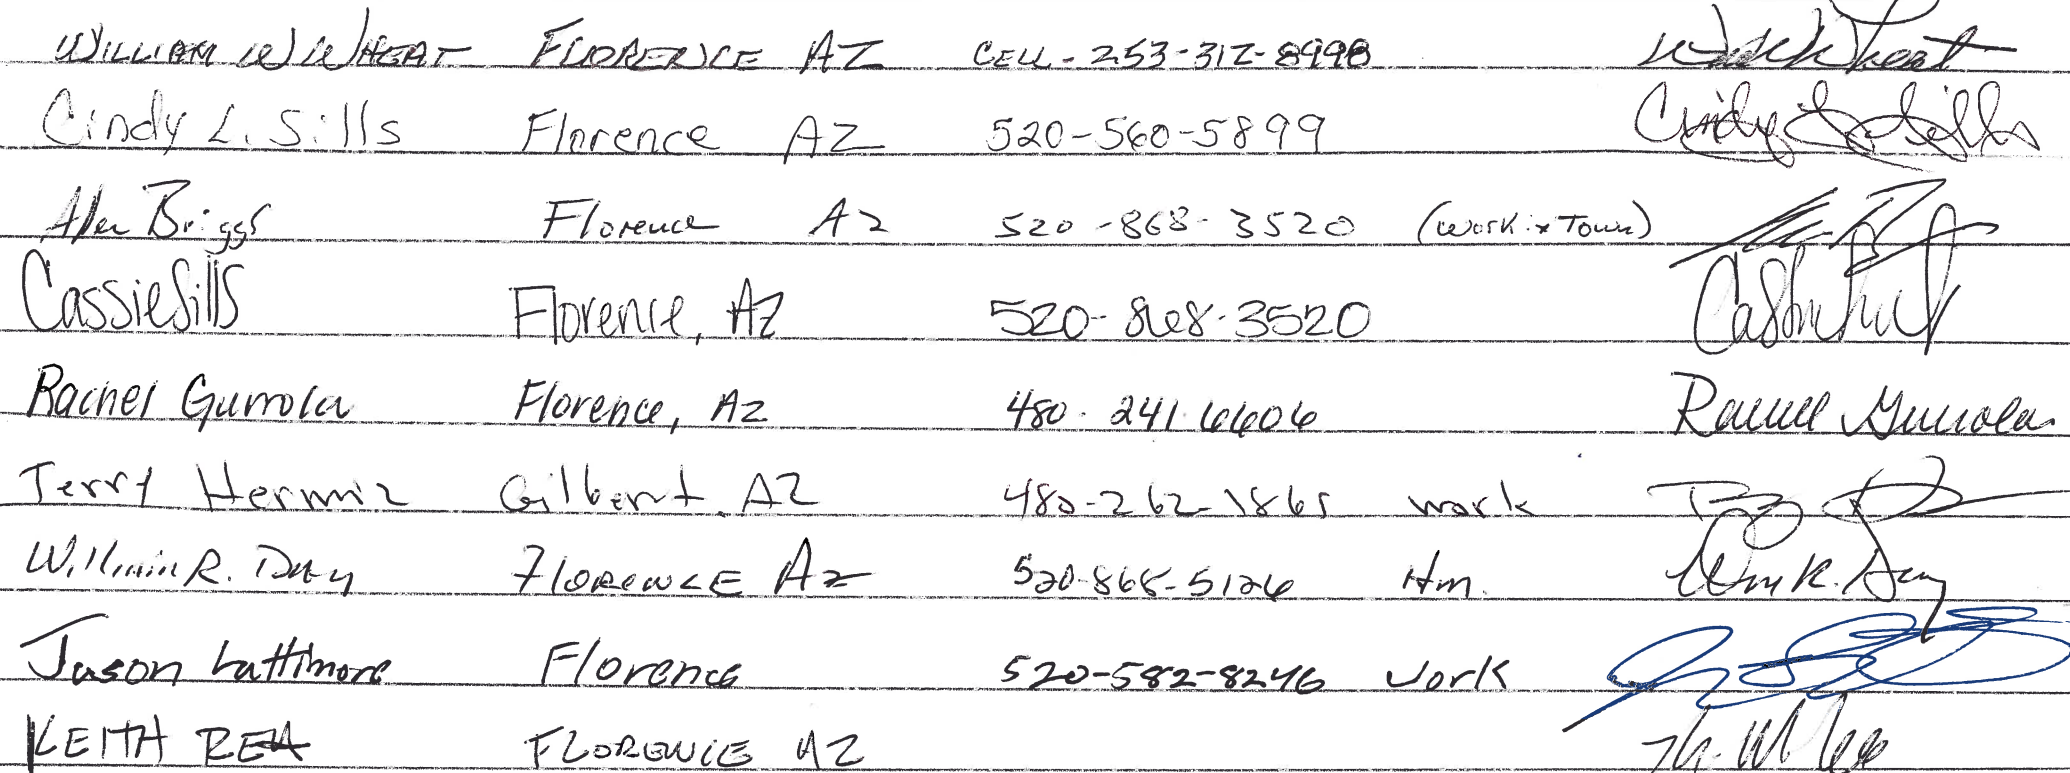 WILLIAM W WHEAT FLORENCE AZ CELL - 253-312-8998
Cindy L. Sills Florence AZ 520-560-5899 Cindy L Sills
Alen Briggs Florence AZ 520-868-3520 (work in Town)
Cassie Sills Florence, AZ 520-868-3520
Rachel Gurrola Florence, AZ 480-241 6606 Rachel Gurrola
Terry Hermiz Gilbert, AZ 480-262-1865 work
William R. Day FLORENCE AZ 520-868-5126 Hm. Wm R. Day
Jason Lattimore Florence 520-582-8246 work
KEITH REA FLORENCE AZ